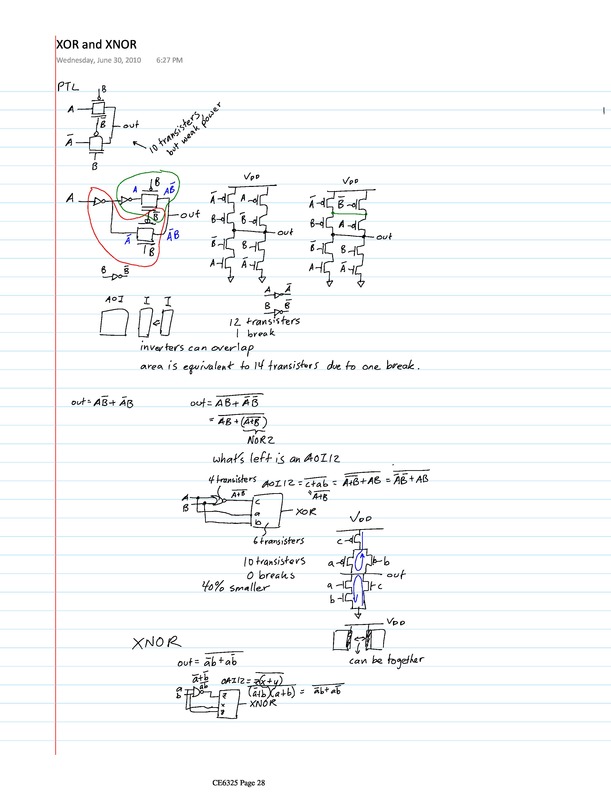 XOR and XNOR
Wednesday, June 30, 2010 6:27 PM
PTL
B
A
B̅
out
A̅
B
10 transistors
but weak power
A
A
B
AB̅
B
out
A̅
A̅B
B
B B̅
VDD
A̅ A
B B̅
out
B̅ B
A A̅
VDD
A̅ B̅
B A
out
B̅ B
A A̅
A A̅
B B̅
AOI I I
12 transistors
1 break
inverters can overlap
area is equivalent to 14 transistors due to one break.
out = AB̅ + A̅B
out = \overline{AB + A̅ B̅}
= \overline{AB + (\overline{A+B})}
NOR2
what's left is an AOI12
4 transistors
AOI12 = \overline{c+ab} = \overline{\overline{A+B}+AB} = \overline{A̅B̅ + AB}
\overline{A+B}
A
B
\overline{A+B}
c
a
b
XOR
6 transistors
10 transistors
0 breaks
40% smaller
VDD
c
a b
out
a c
b
VDD
can be together
XNOR
out = \overline{a̅b + ab̅}
a̅+b̅
\overline{ab}
OAI12 = \overline{z(x+y)}
a
b
z
x
\overline{(a̅+b̅)(a+b)} = \overline{a̅b + ab̅}
XNOR
CE6325 Page 28